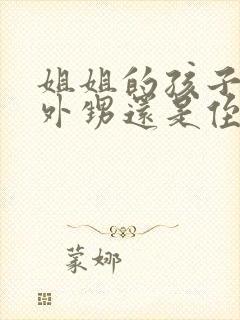 姐姐的孩子
外甥還是侄
蒙娜